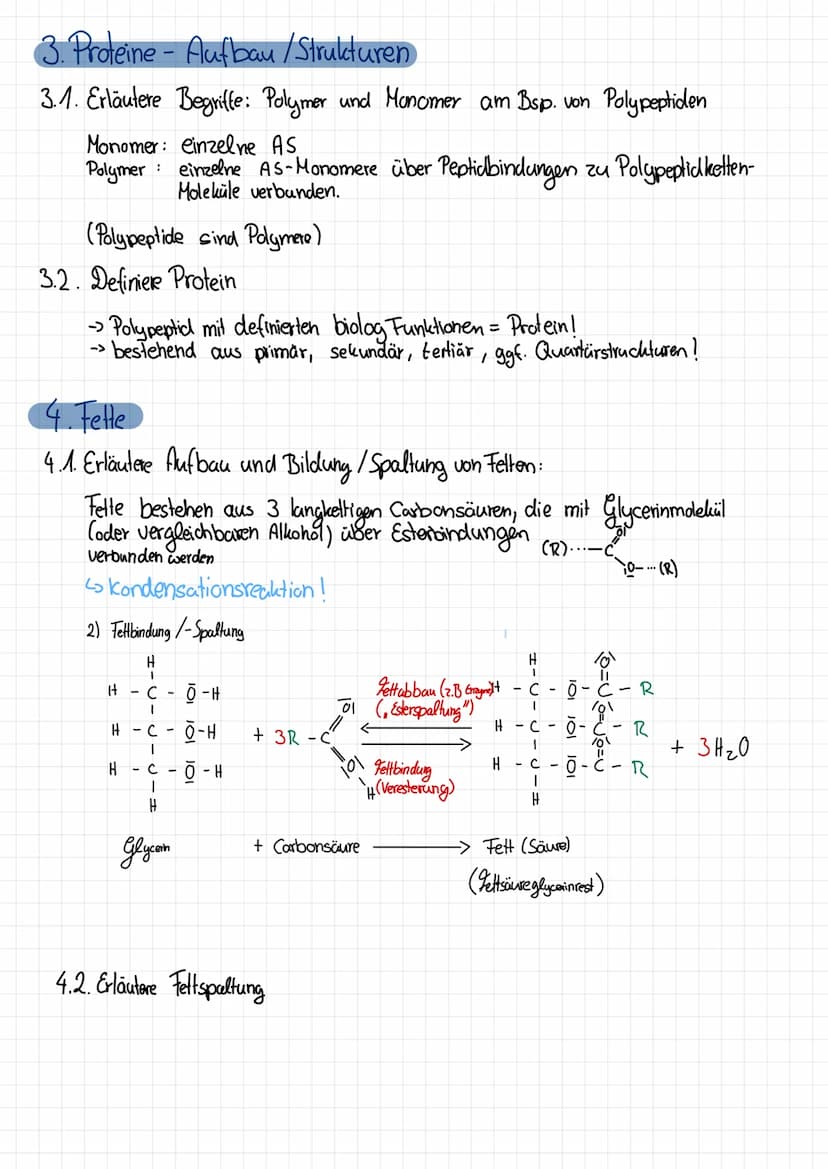 3. Proteine - Aufbau / Strukturen
3.1. Erläutere Begriffe: Polymer und Monomer am Bsp. von Polypeptiden
Monomer: einzelne AS
Polymer : einzelne AS-Monomere über Peptidbindungen zu Polypeptidketten-
Moleküle verbunden.
(Polypeptide sind Polymere)
3.2. Definiere Protein
-> Polypeptid mit definierten biolog Funktionen = Protein!
-> bestehend aus primär, sekundär, tertiär, ggf. Quartärstruckturen!
4. Fette
4.1. Erläutere Aufbau und Bildung / Spaltung von Fetten:
Fette bestehen aus 3 langkettigen Carbonsäuren, die mit Glycerinmolekül
(oder vergleichbaren Alkohol) über Esterbindungen
verbunden werden
(R)···-C
O
O-···(R)
↳ Kondensationsreaktion!
2) Fettbindung /-Spaltung
H
H - C - O - H
H - C - O - H
H - C - O - H
H
+ 3R - C
O
O
H
Fettabbau (z.B Enzyme)
(„Esterspaltung")
Fettbindung
(Veresterung)
H
O
H - C - O - C - R
O
H - C - O - C - R
O
H - C - O - C - R
H
+ 3H₂O
Glycerin + Carbonsäure → Fett (Säure)
(Fettsäureglycerinrest)
4.2. Erläutere Fettspaltung